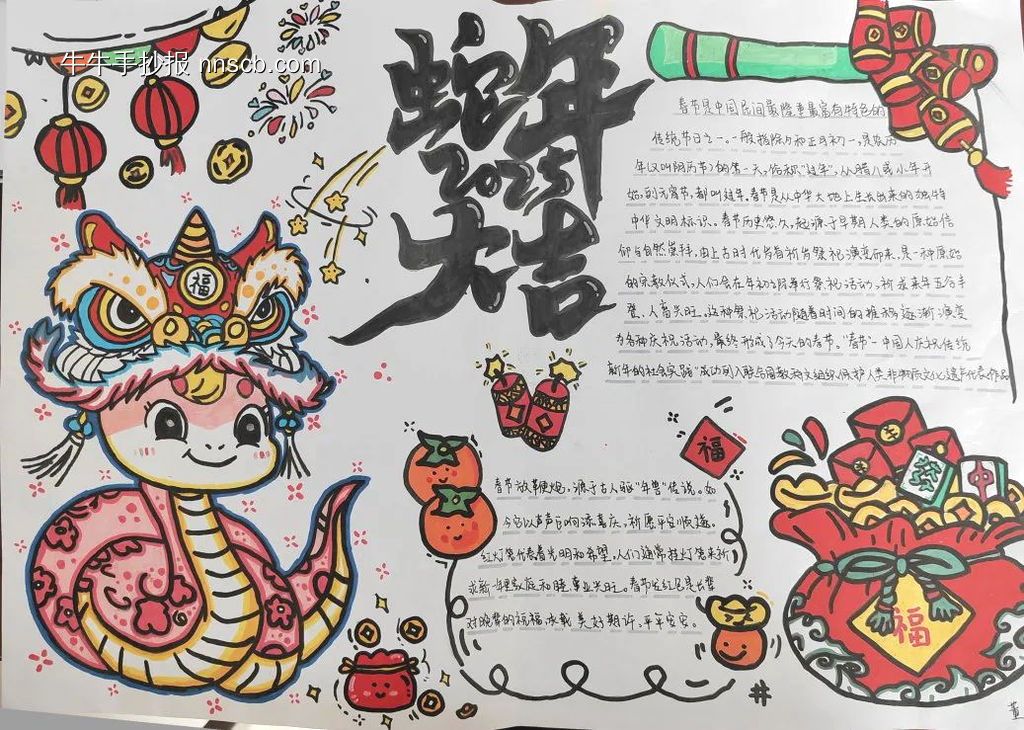 牛牛手抄报 nnscb.com
蛇年
2025
大吉
春节是中国民间最隆重最富有特色的
传统节日之一。一般指除夕和正月初一,是农历
年(又叫阴历节)的第一天,俗称"过年",从腊八或小年开
始,到元宵节,都叫过年。春节是从中华大地上生长出来的独特
中华文明标识。春节历史悠久,起源于早期人类的原始信
仰与自然崇拜,由上古时代岁首祈岁祭祀演变而来,是一种原始
的宗教仪式,人们会在年初之时举行祭祀活动,祈求来年五谷丰
登、人畜兴旺。这种祭祀活动随着时间的推移逐渐演变
为各种庆祝活动,最终形成了今天的春节。"春节一中国人庆祝传统
新年的社会实践"成功列入联合国教科文组织保护人类非物质文化遗产代表作品
福
福
春节放鞭炮,源于古人驱"年兽"传说。如
今它以声声巨响添喜庆,祈愿平安顺遂。
红灯笼代表着光明和希望,人们通常挂灯笼来祈
求新一年里家庭和睦,事业兴旺。春节发红包是长辈
对晚辈的祝福,承载美好期许,平平安安。
發
中
福
董